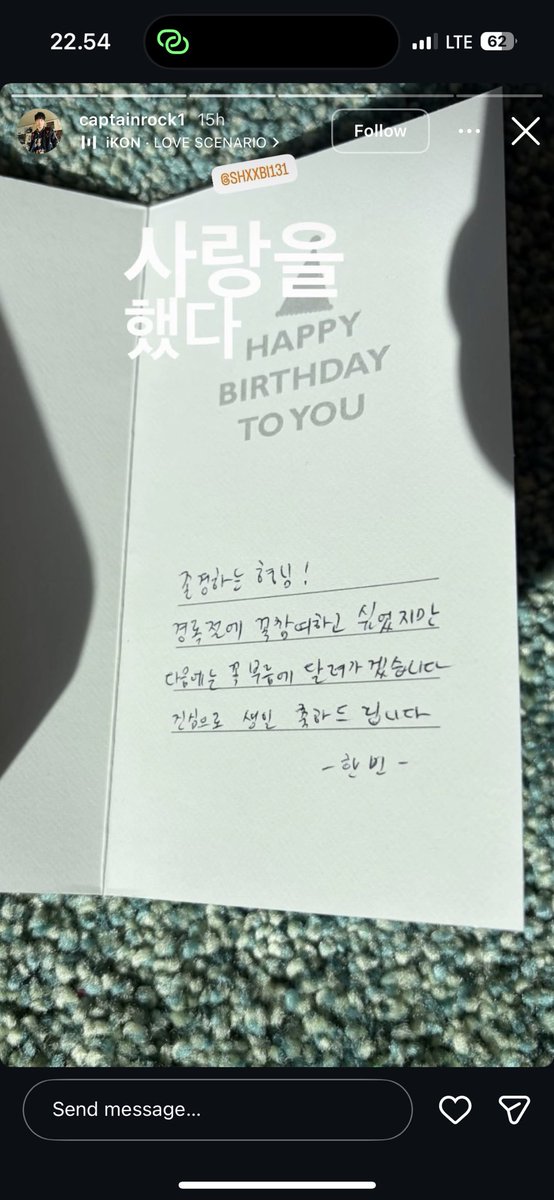 22.54
LTE 62
captainrock1 15h
iKON · LOVE SCENARIO >
Follow
@SHXXBI131
사랑을
했다
HAPPY
BIRTHDAY
TO YOU
존경하는 형님!
경록절에 꼭 참여하고 싶었지만
다음에는 꼭 부름에 달려가겠습니다
진심으로 생일 축하드립니다
- 한빈 -
Send message...